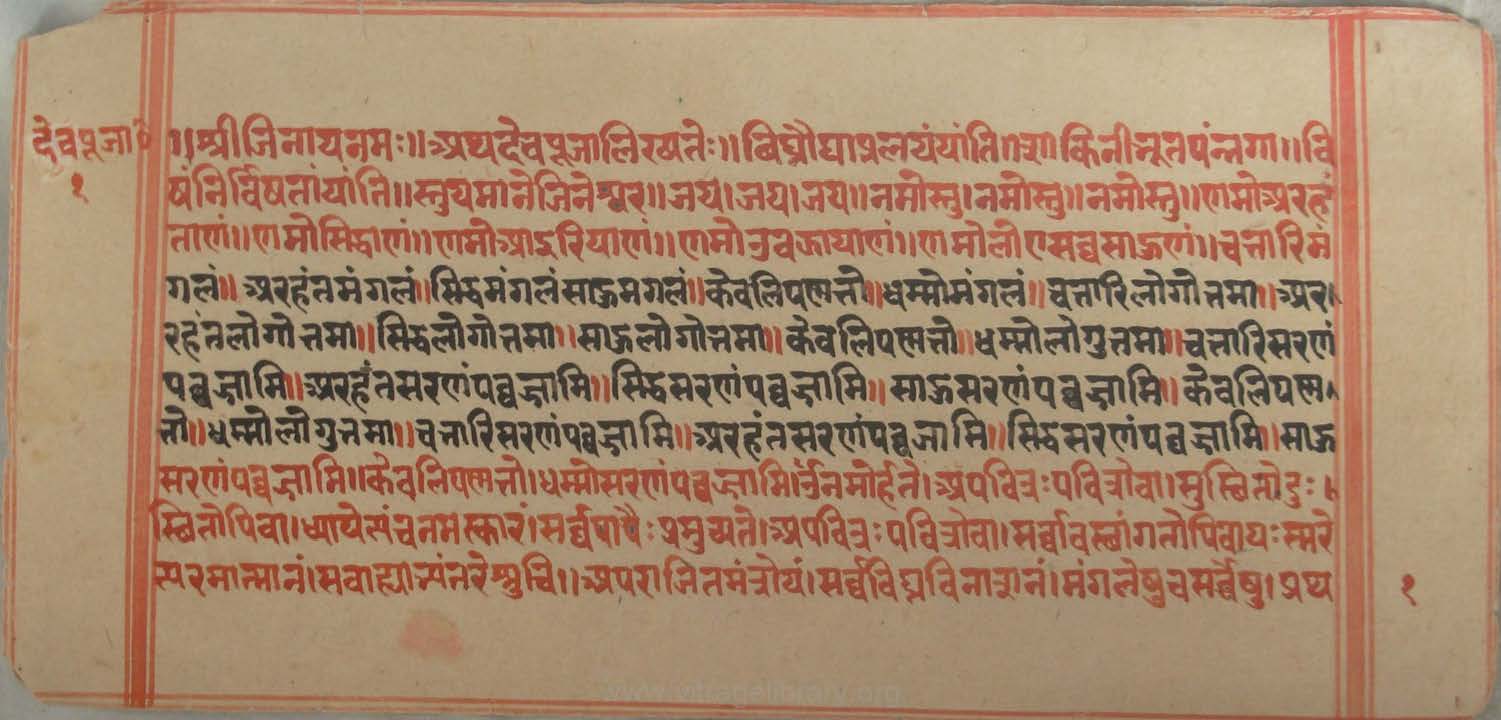 देवपूजा
१
॥श्रीजिनायनमः॥अथदेवपूजालिख्यतेः॥विघ्नौघाप्रलयंयांति।शाकिनीभूतपंन्नगा॥वि
षंनिर्विषतांयांति॥स्तुयमानेजिनेश्वर॥जय।जय।जय॥नमोस्तु।नमोस्तु॥नमोस्तु॥णमोअरहं
ताणं॥णमोसिद्धाणं॥णमोआइरियाणं॥णमोउवज्झायाणं॥णमोलोएसव्वसाहूणं॥चत्तारिमं
गलं॥अरहंतमंगलं॥सिद्धमंगलंसाहूमगलं॥केवलिपण्णत्तो॥धम्मोमंगलं॥चत्तारिलोगोत्तमा॥अर
रहंतलोगोत्तमा॥सिद्धलोगोत्तमा॥साहूलोगोत्तमा॥केवलिपण्णत्तो॥धम्मोलोगुत्तमा॥चत्तारिसरणं
पव्वज्जामि॥अरहंतसरणंपव्वज्जामि॥सिद्धसरणंपव्वज्जामि॥साहूसरणंपव्वज्जामि॥केवलिपण्ण
त्तो॥धम्मोलोगुत्तमा॥चत्तारिसरणंपव्वज्जामि॥अरहंतसरणंपव्वज्जामि॥सिद्धसरणंपवज्जामि॥साहू
सरणंपव्वज्जामि॥केवलिपण्णत्तो।धम्मोसरणंपव्वज्जामि।र्उंनमोर्हते।अपवित्रःपवित्रोवा।सुस्थितोदुः।
स्थितोपिवा।ध्यायेत्पंचनमस्कारं।सर्व्वपापैःप्रमुच्यते।अपवित्रःपवित्रोवा।सर्व्वावस्थांगतोपिवायःस्मरे
त्परमात्मानं।सवाह्याभ्यंतरेश्रुचि॥अपराजितमंत्रोयं।सर्व्वविघ्नविनाशनं।मंगलेषुचसर्व्वेषु।प्रथ
१